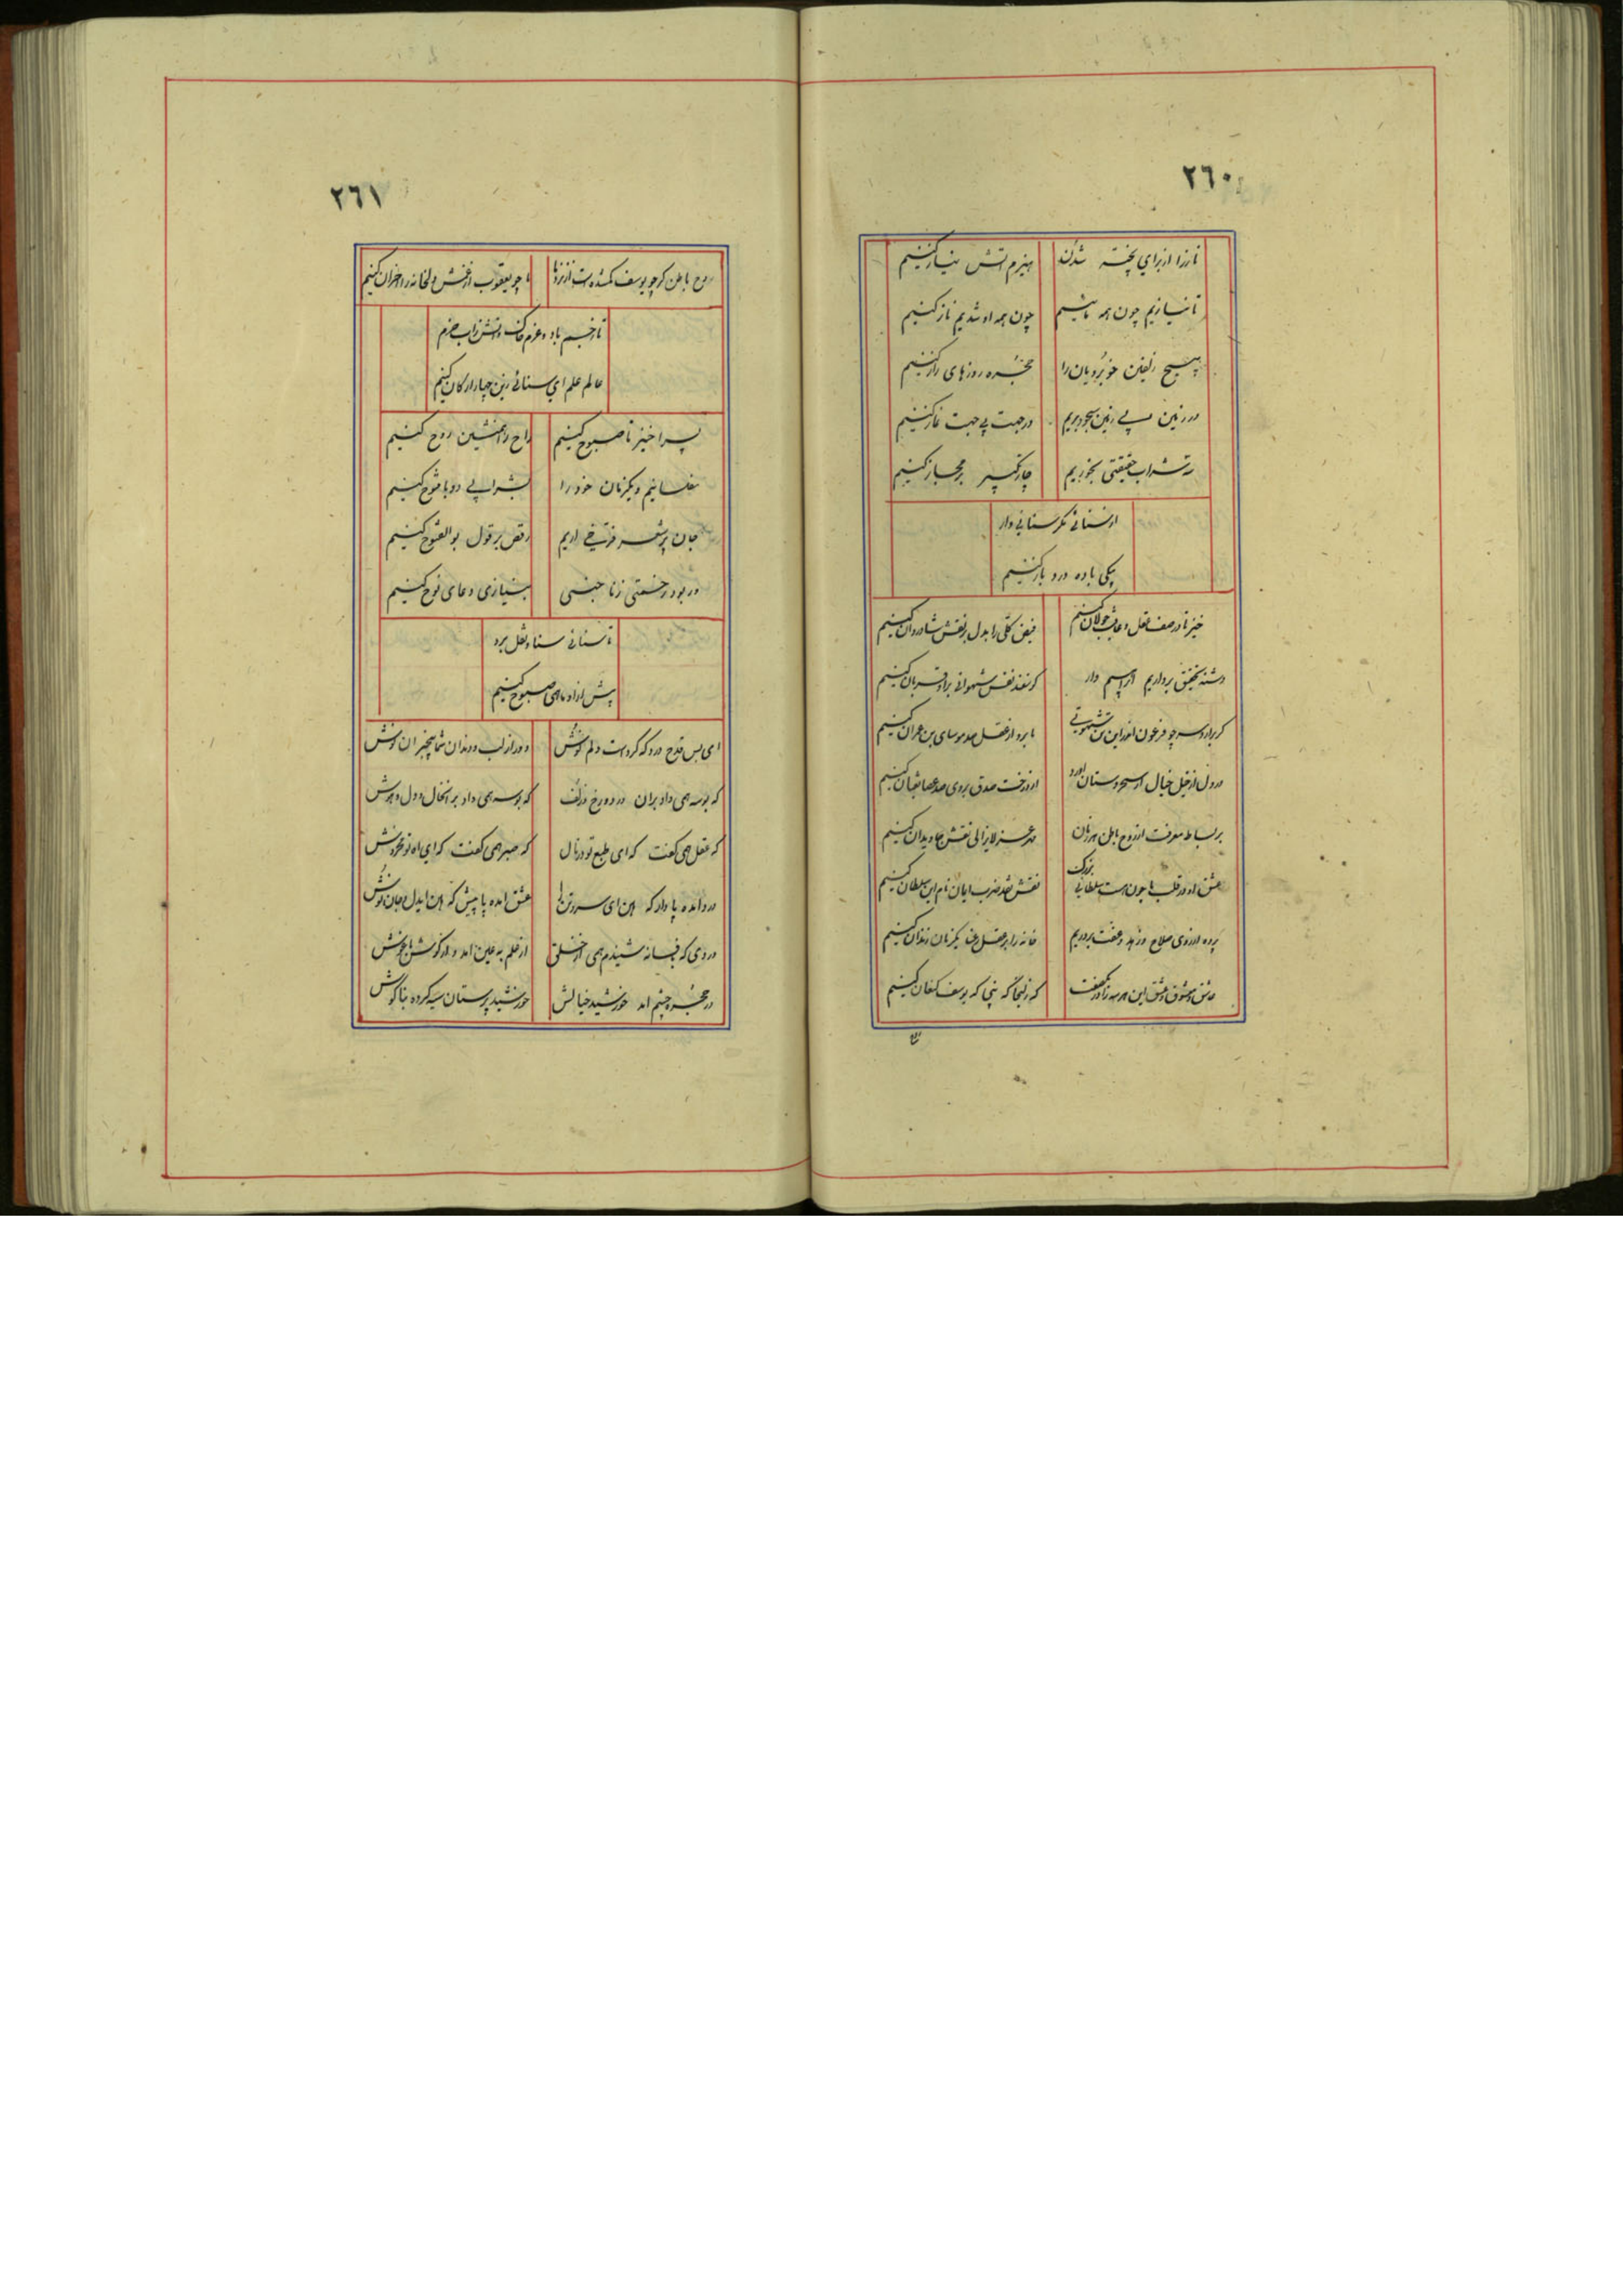 ٢٦٠
ناز را از برای پخته شدن هیزم آتش نیاز کنیم
تا نیازیم چون همه باشیم چون همه او شدیم ناز کنیم
زلفین خوبرویان را حجره روزهای راز کنیم
در زمین بی زمین سجود بریم در جهت بی جهت نماز کنیم
شراب حقیقتی بخوریم چار تکبیر بر مجاز کنیم
سنائی مگر سنائی وار
یکی باده درد باز کنیم
خیز تا در صف عقل و عافیت جولان کنیم نفس کلی را بدل بر نقش شادروان کنیم
دشنه تحقیق برداریم ابراهیم وار گوسفند نفس شهوانی برو قربان کنیم
گر برارد سر چو فرعون اندر این تن شهوتی ما برو از عقل صد موسای بن عمران کنیم
در دل از خیل خیال از سحر دستان آورد از درخت صدق بروی صد عصا ثعبان کنیم
بر بساط معرفت از روح باطن هر زمان مهر عز لایزالی نقش جاویدان کنیم
عشق او در قلب ما چون هست سلطانی بزرگ نقش نقد ضرب ایمان نام این سلطان کنیم
پرده از روی صلاح و زهد و عفت بردریم خانه را بر عقل رعنا یکزمان زندان کنیم
عاشق و معشوق و عشق این هر سه را در یک صفت گه زلیخا گه نبی گه یوسف کنعان کنیم
٢٦١
روح باطن گر چو یوسف گمشده است از نزد ما ما چو یعقوب از غمش دلخانه را احزان کنیم
تا ز خشم باد و عزم خاک و آتش زاب حزم
عالم علم ای سنائی زین چهار ارکان کنیم
پسرا خیز تا صبوح کنیم راح را همنشین روح کنیم
مفلسانیم و یکزمان خود را بشرابی دو با فتوح کنیم
جان بر شعر داریم رقص بر قول بوالفتوح کنیم
ور بود زحمتی ز نا جنسی بنیازی دعای نوح کنیم
تا سنائی سنا و ثقل برد
پیش ازو ما همی صبوح کنیم
ای بس قدح درد که کردست دلم نوش دور از لب و دندان شما بیخبران دوش
گه بوسه همی داد بران درد و رخ و زلف گه بوسه همی داد بر انخال و دل و هوش
گه عقل همی گفت که ای طبع تو در نال گه صبر همی گفت که ای اه تو مخروش
درد آمده با دل که هین ای سر و تن ها عشق آمده با پیش که هین ای دل و جان نوش
دردی که بفسانه شنیدم همی از خلق از علم به عین آمد و از گوش باغوش
در حجره چشم آمد خورشید خیالش خورشید پرستان سیه کرده بناگوش